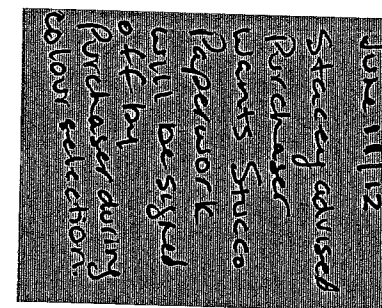 June 11/12
Stacey advised
Purchaser
wants Stucco
Paperwork
will be signed
off by
Purchaser during
colour selection.